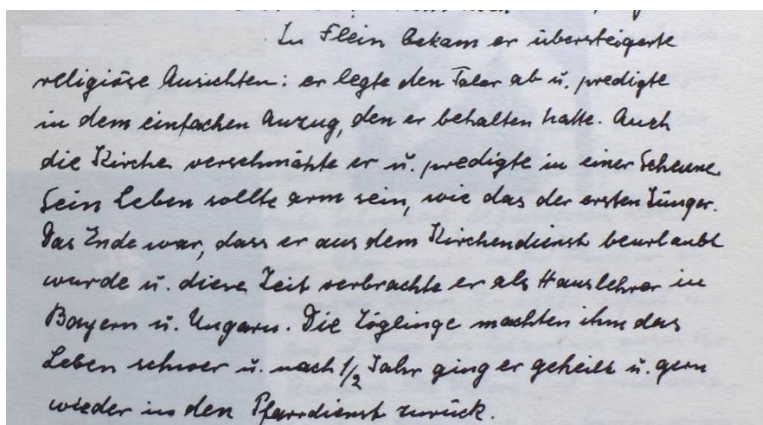 In Flein bekam er übersteigerte
religiöse Ansichten: er legte den Talar ab u. predigte
in dem einfachen Anzug, den er behalten hatte. Auch
die Kirche verschmähte er u. predigte in einer Scheune.
Sein Leben sollte arm sein, wie das der ersten Jünger.
Das Ende war, dass er aus dem Kirchendienst beurlaubt
wurde u. diese Zeit verbrachte er als Hauslehrer in
Bayern u. Ungarn. Die Zöglinge machten ihm das
Leben schwer u. nach 1/2 Jahr ging er geheilt u. gern
wieder in den Pfarrdienst zurück.